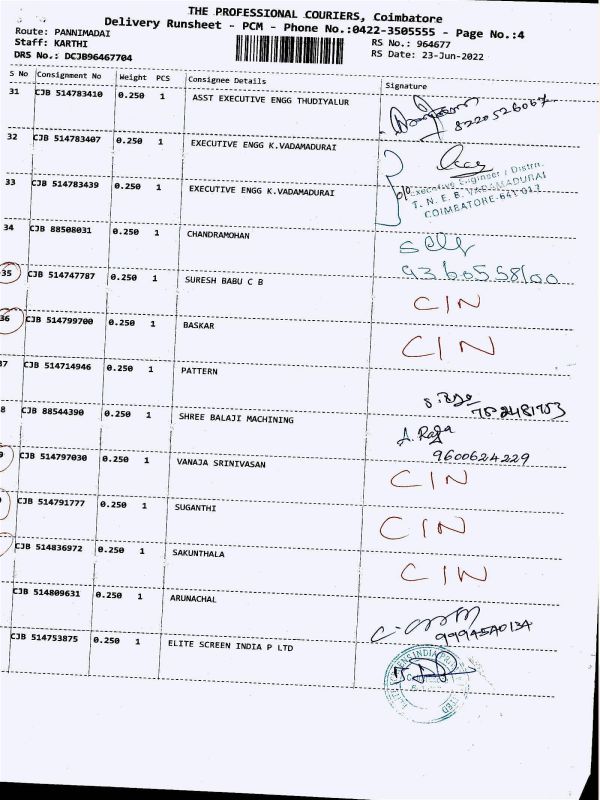 THE PROFESSIONAL COURIERS, Coimbatore
Delivery Runsheet - PCM - Phone No.:0422-3505555 - Page No.:4
Route: PANNIMADAI
Staff: KARTHI
DRS No.: DCJB96467704
RS No.: 964677
RS Date: 23-Jun-2022
S No Consignment No Weight PCS Consignee Details Signature
31 CJB 514783410 0.250 1 ASST EXECUTIVE ENGG THUDIYALUR
8220526067
32 CJB 514783407 0.250 1 EXECUTIVE ENGG K.VADAMADURAI
33 CJB 514783439 0.250 1 EXECUTIVE ENGG K.VADAMADURAI
Executive Engineer / Distrn.
T. N. E. B. VADAMADURAI
COIMBATORE-641 017
34 CJB 88508031 0.250 1 CHANDRAMOHAN self
9360558100
35 CJB 514747787 0.250 1 SURESH BABU C B CIN
36 CJB 514799700 0.250 1 BASKAR CIN
37 CJB 514714946 0.250 1 PATTERN
8 CJB 88544390 0.250 1 SHREE BALAJI MACHINING A. Raja
9600624229
9 CJB 514797030 0.250 1 VANAJA SRINIVASAN CIN
CJB 514791777 0.250 1 SUGANTHI CIN
CJB 514836972 0.250 1 SAKUNTHALA CIN
CJB 514809631 0.250 1 ARUNACHAL
CJB 514753875 0.250 1 ELITE SCREEN INDIA P LTD